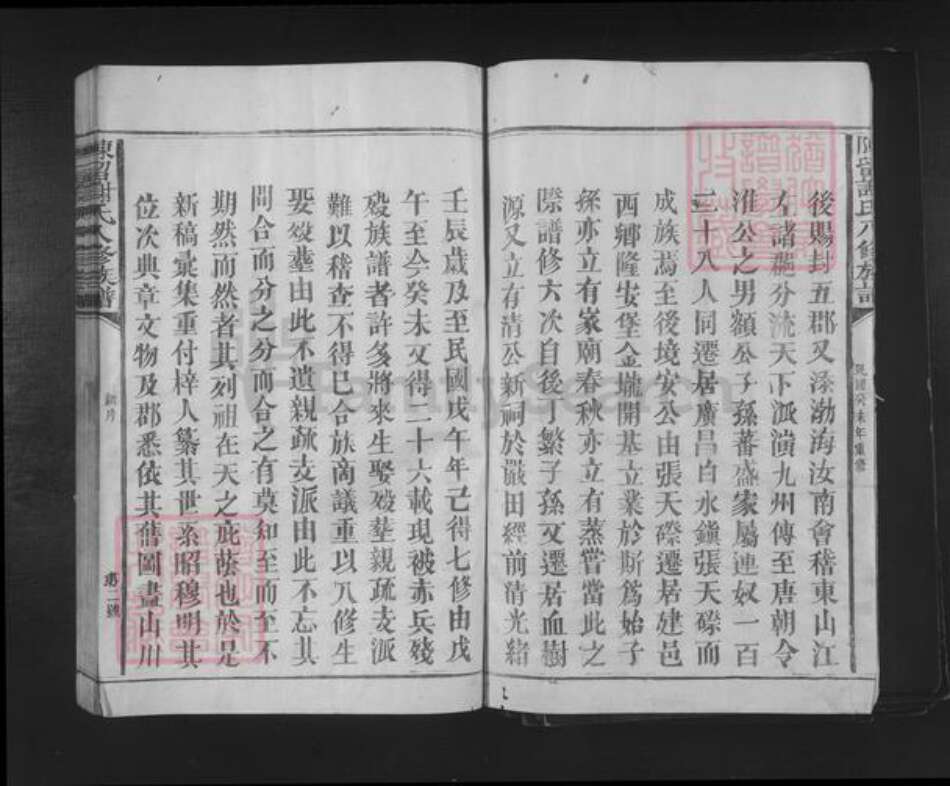 陳留謝氏八修族譜
民國癸未年重修
後賜封五郡又添渤海汝南會稽東山江
左諸郡分流天下派演九州傳至唐朝令
淮公之男額公子孫蕃盛家屬連奴一百
三十八人同遷居廣昌白水鎮張天磜而
成族焉至後境安公由張天磜遷居建邑
西鄉隆安堡金壠開基立業於斯爲始子
孫亦立有家廟春秋亦立有蒸嘗當此之
際譜修六次自後丁繁子孫又遷居血樹
源又立有清公新祠於嚴田經前清光緒
壬辰歲及至民國戊午年己得七修由戊
午至今癸未又得二十六載現被赤兵殘
毀族譜者許多將來生娶歿塟親疏支派
難以稽查不得已合族商議重以八修生
娶歿塟由此不遺親疎支派由此不忘其
間合而分之分而合之有莫知至而至不
期然而然者其列祖在天之庇蔭也於是
新稿彙集重付梓人纂其世系昭穆明其
位次典章文物及郡悉依其舊圖畫山川
陳留謝氏八修族譜
第二號
FamilySearch